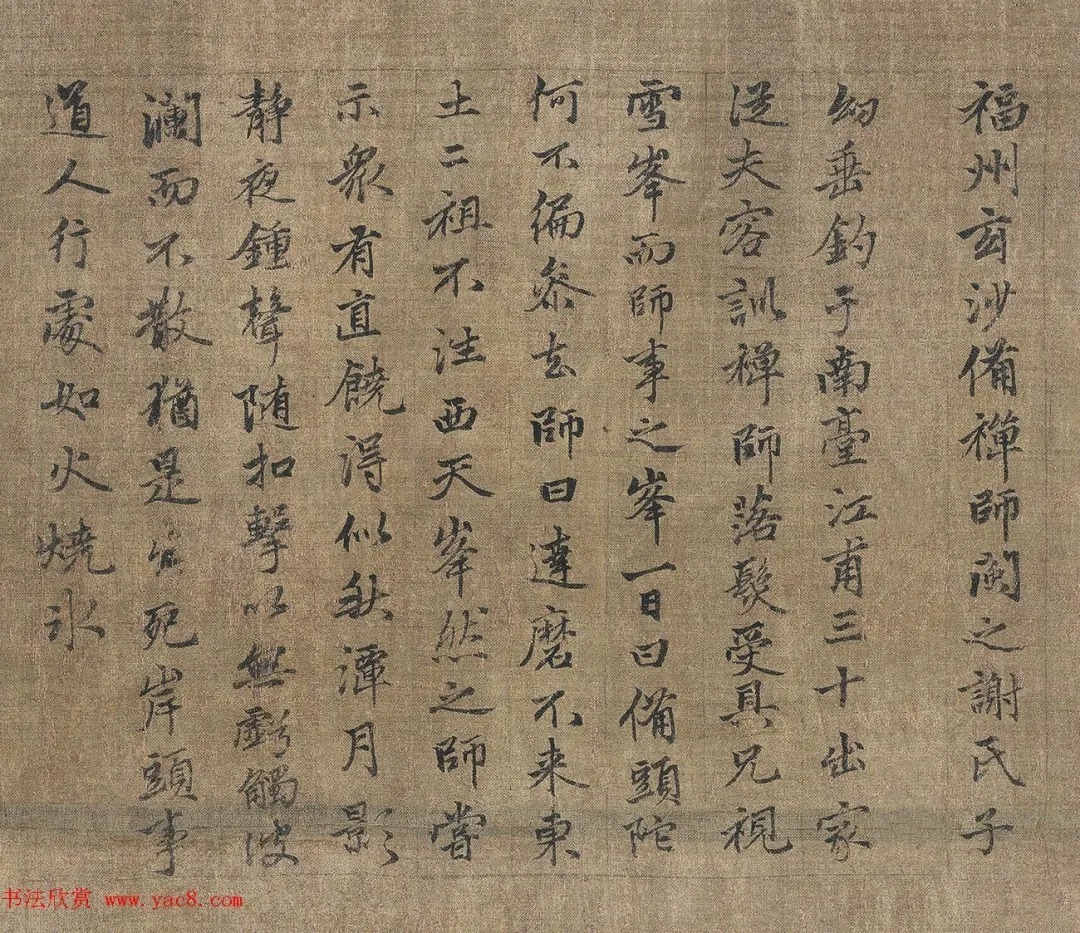 福州玄沙備禪師閩之謝氏子
幼垂釣于南臺江甫三十出家
從夫容訓禪師落髮受具兄視
雪峯而師事之峯一日曰備頭陀
何不徧叅去師曰達磨不来東
土二祖不往西天峯然之師嘗
示衆有直饒得似秋潭月影
静夜鍾聲随扣擊以無虧觸波
瀾而不散猶是生死岸頭事
道人行處如火燒氷
书法欣赏 www.yac8.com